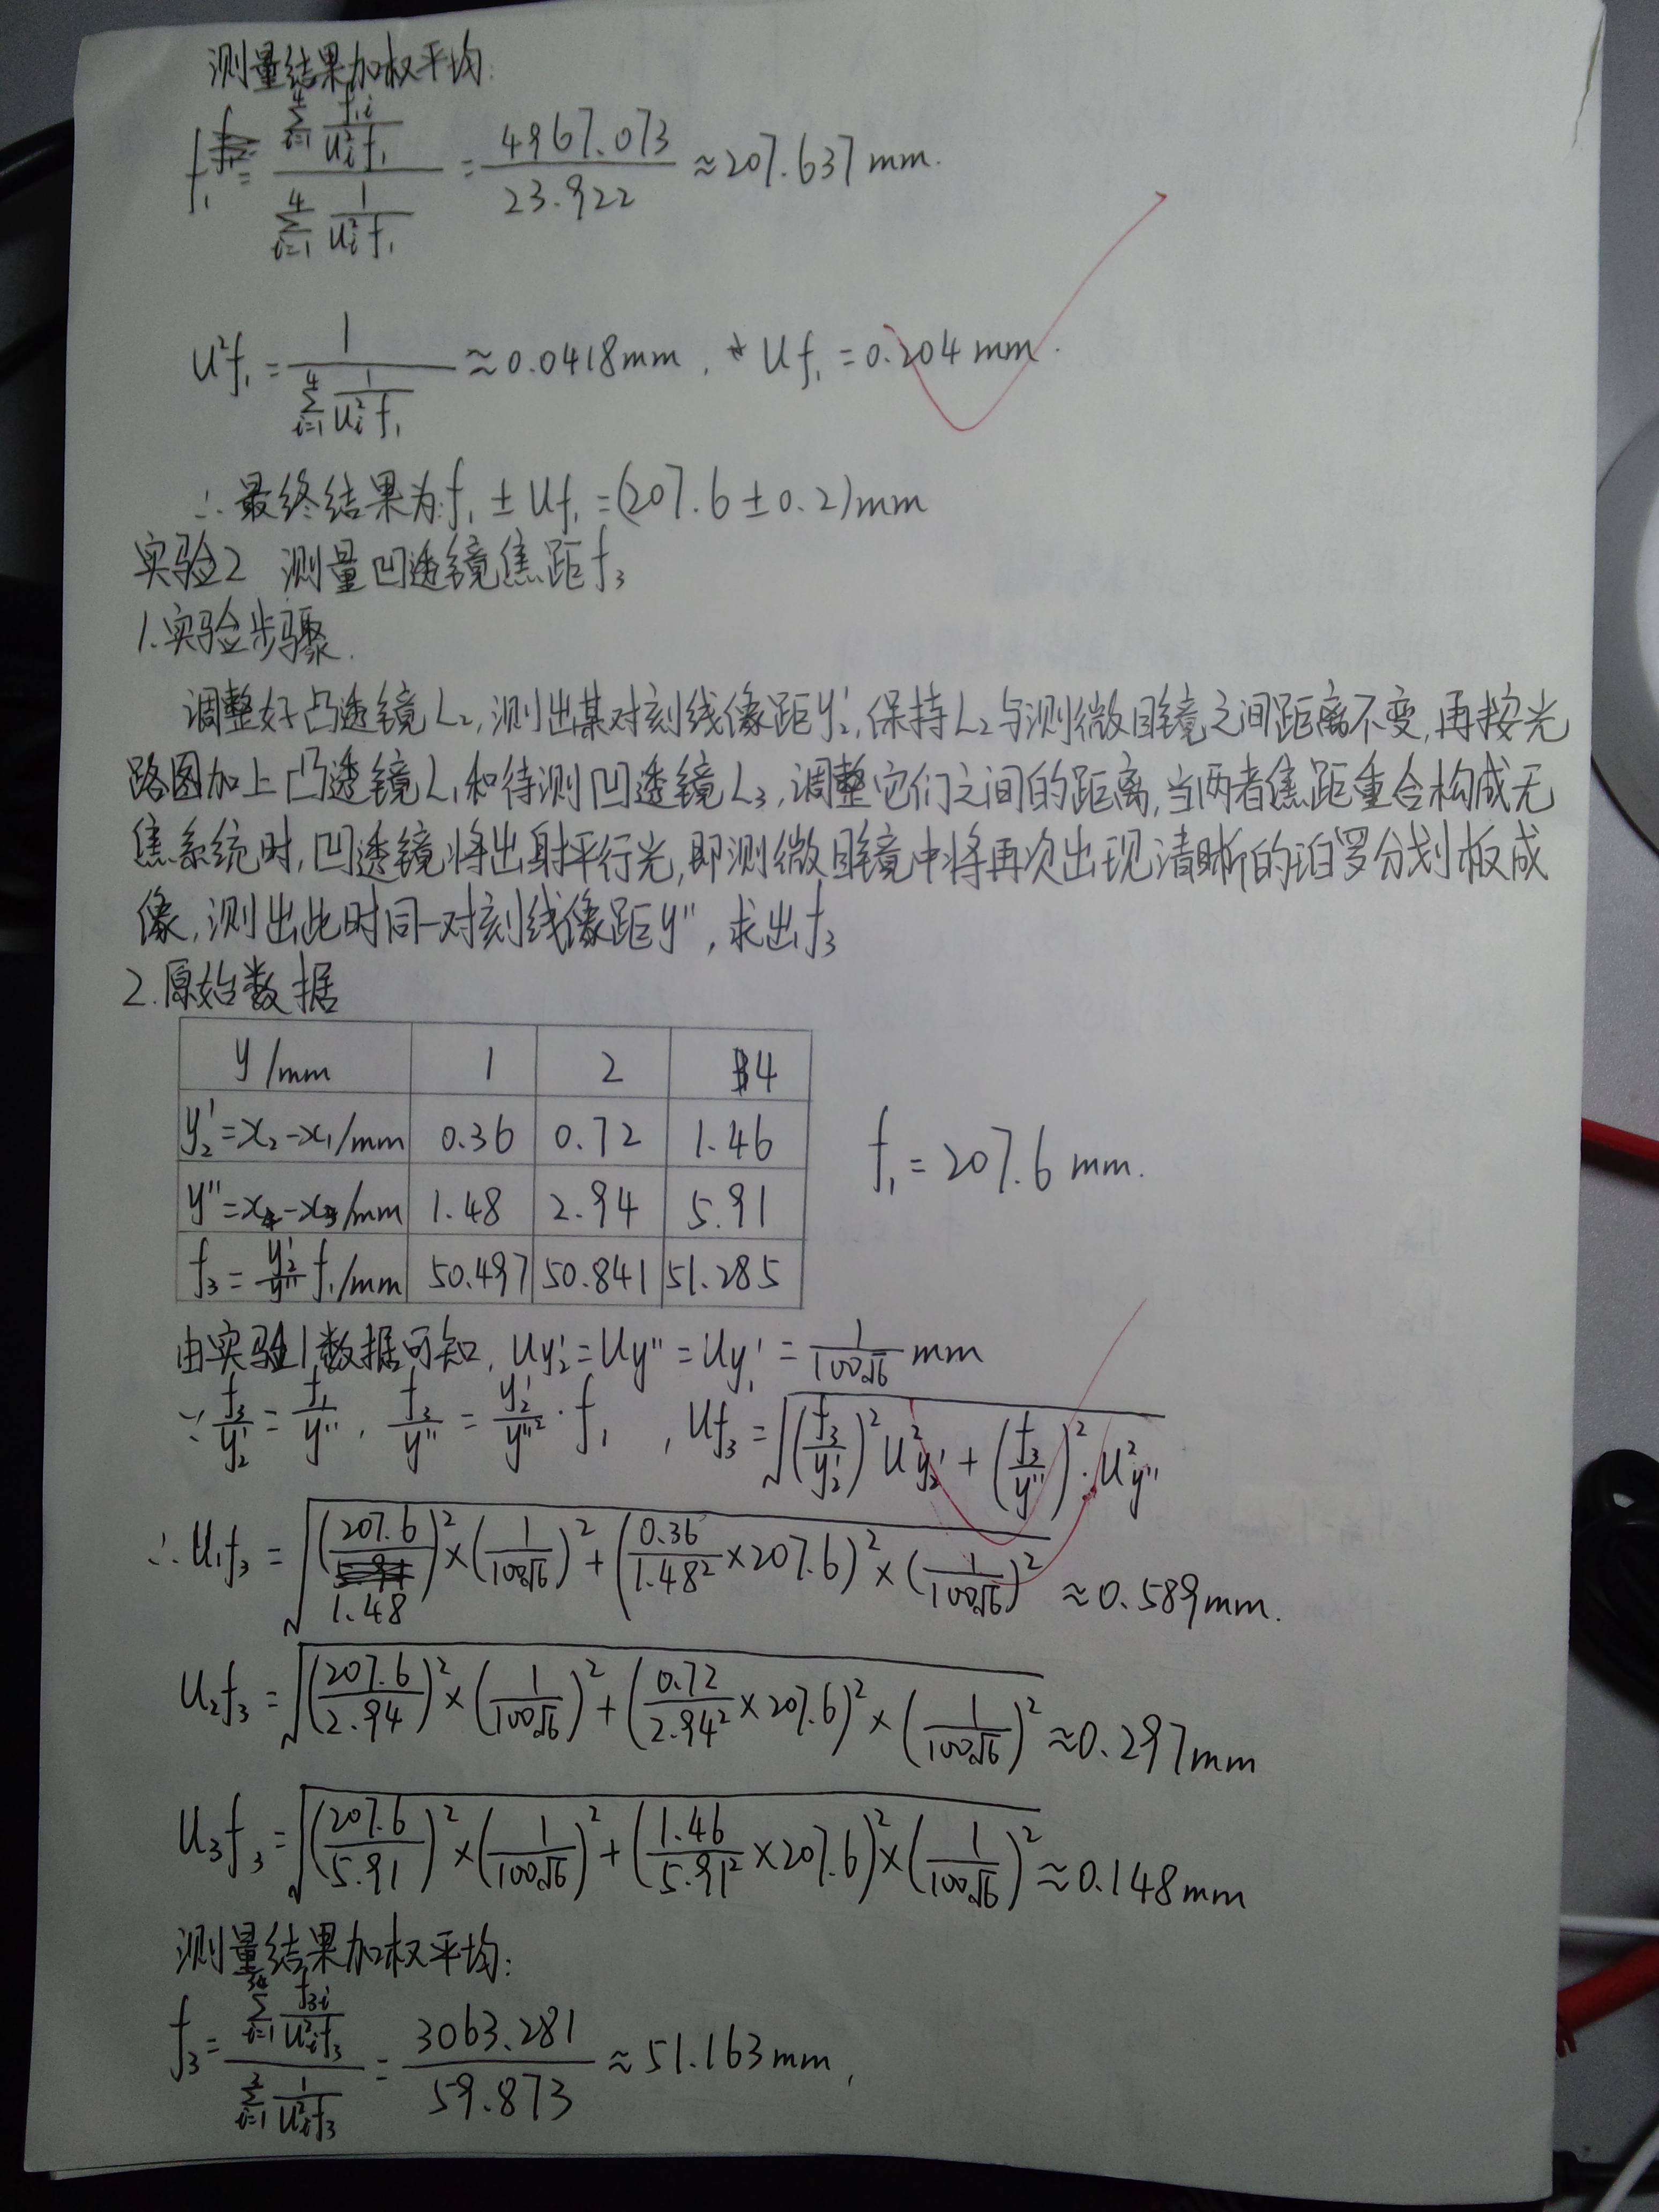 测量结果加权平均:
f₁ = (Σ_{i=1}^{4} f₁i/u²ᵢf₁) / (Σ_{i=1}^{4} 1/u²ᵢf₁) = 4967.073/23.922 ≈ 207.637 mm.
u²f₁ = 1/(Σ_{i=1}^{4} 1/u²ᵢf₁) ≈ 0.0418mm, uf₁ = 0.204 mm.
∴ 最终结果为: f₁ ± uf₁ = (207.6 ± 0.2)mm
实验2 测量凹透镜焦距f₃
1.实验步骤.
调整好凸透镜L₂,测出某对刻线像距y₂',保持L₂与测微目镜之间距离不变,再按光
路图加上凸透镜L₁和待测凹透镜L₃,调整它们之间的距离,当两者焦距重合构成无
焦系统时,凹透镜将出射平行光,即测微目镜中将再次出现清晰的珀罗分划板成
像,测出此时同一对刻线像距y'',求出f₃
2.原始数据
y/mm 1 2 4
y₂'=x₂-x₁/mm 0.36 0.72 1.46
y''=x₄-x₃/mm 1.48 2.94 5.91
f₃=(y₂'/y'')f₁/mm 50.497 50.841 51.285
f₁ = 207.6 mm.
由实验1数据可知, uy₂' = uy'' = uy₁' = 1/(100√6) mm
∵ f₃/y₂' = f₁/y'', f₃/y'' = y₂'/y''² · f₁, uf₃ = √((f₃/y₂')² u²y₂' + (f₃/y'')² · u²y'')
∴ u₁f₃ = √((207.6/1.48)² × (1/(100√6))² + (0.36/1.48² × 207.6)² × (1/(100√6))²) ≈ 0.589mm.
u₂f₃ = √((207.6/2.94)² × (1/(100√6))² + (0.72/2.94² × 207.6)² × (1/(100√6))²) ≈ 0.297mm
u₃f₃ = √((207.6/5.91)² × (1/(100√6))² + (1.46/5.91² × 207.6)² × (1/(100√6))²) ≈ 0.148mm
测量结果加权平均:
f₃ = (Σ_{i=1}^{3} f₃i/u²ᵢf₃) / (Σ_{i=1}^{3} 1/u²ᵢf₃) = 3063.281/59.873 ≈ 51.163mm,